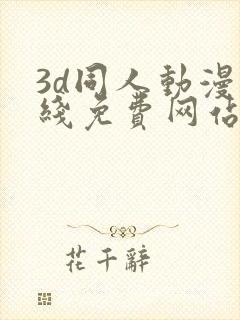 3d同人動漫
綫免費网佔
花千辭